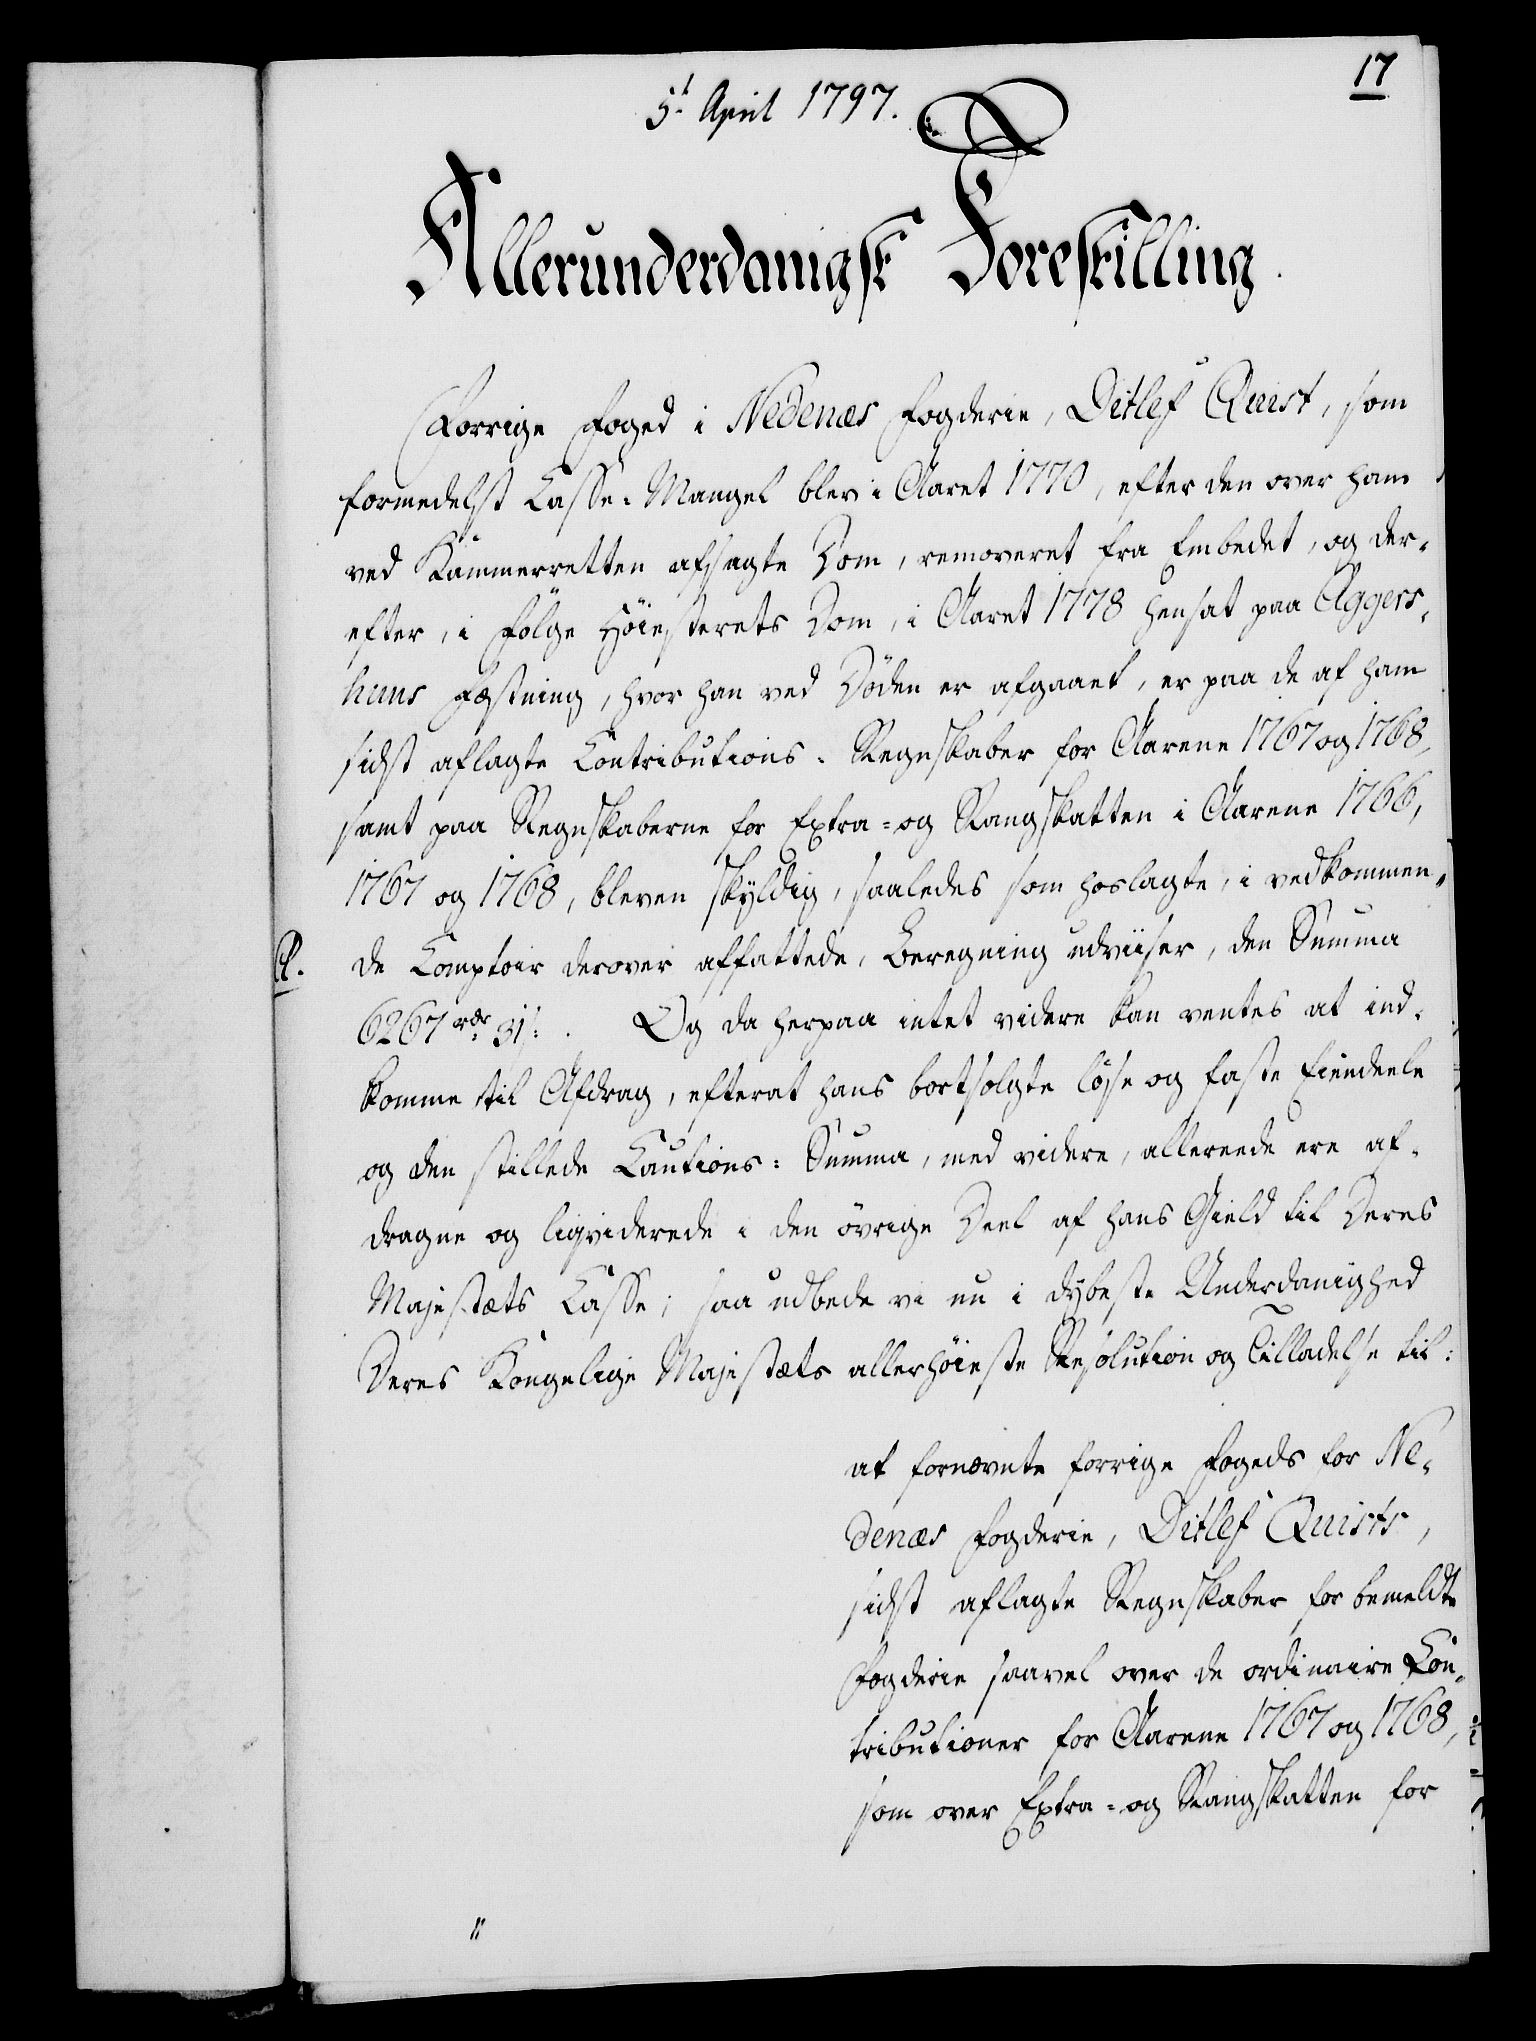 17
5t April 1797.
Allerunderdanigst Forestilling.
Forrige Foged i Nedenæs Fogderie, Ditlef Quist, som
formedelst Casse-Mangel blev i Aaret 1770, efter den over ham
ved Kammerretten afsagte Dom, removeret fra Embedet, og der-
efter, i Fölge Höiesterets Dom, i Aaret 1778 hensat paa Aggers-
huus Fæstning, hvor han ved Döden er afgaaet, er paa de af ham
sidst aflagte Contributions-Regnskaber for Aarene 1767 og 1768,
samt paa Regnskaberne for Extra- og Rangskatten i Aarene 1766,
1767 og 1768, bleven skyldig, saaledes som hoslagte, i vedkommen-
A. de Comptoir derover affattede, Beregning udviiser, den Summa
6267 rdr 31 s:. Og da herpaa intet videre kan ventes at ind-
komme til Afdrag, efterat hans bortsolgte löse og faste Eiendeele
og den stillede Cautions-Summa, med videre, allereede ere af-
dragne og liqviderede i den övrige Deel af hans Gield til Deres
Majestæts Casse; saa udbede vi nu i dybeste Underdanighed
Deres Kongelige Majestæts allerhöieste Resolution og Tilladelse til:
at fornævnte forrige Fogeds for Ne-
denæs Fogderie, Ditlef Quists,
sidst aflagte Regnskaber for bemeldte
Fogderie saavel over de ordinaire Con-
tributioner for Aarene 1767 og 1768,
som over Extra- og Rangskatten for